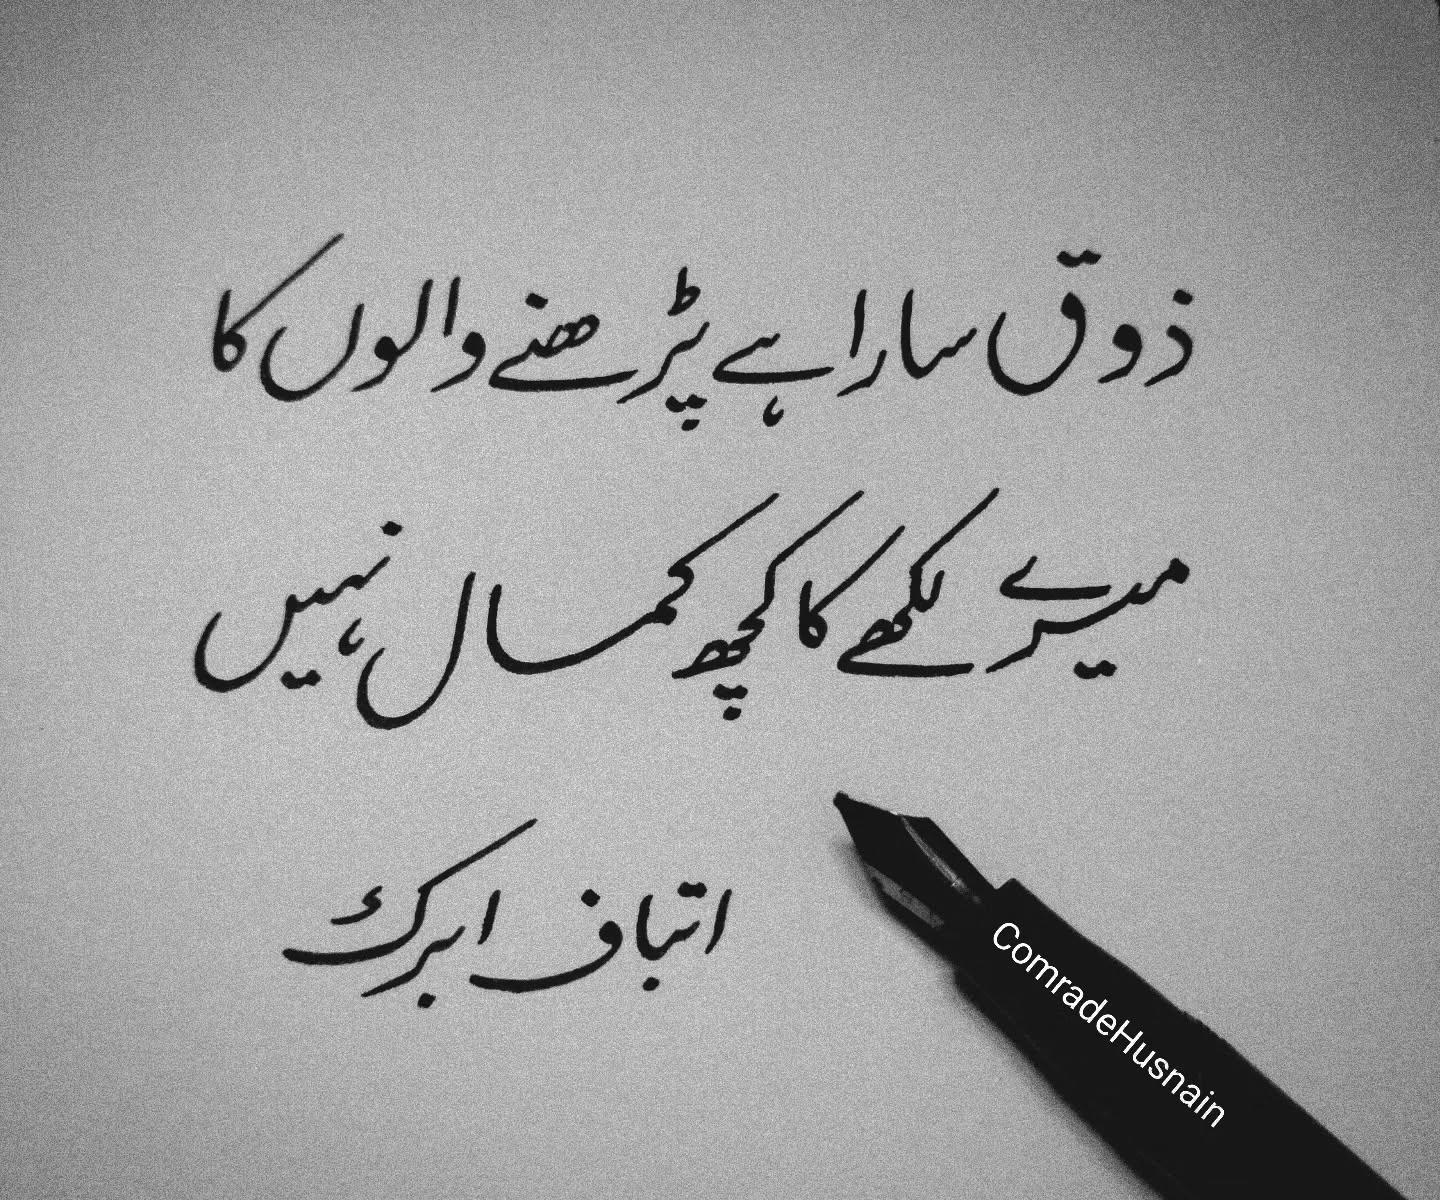 ذوق سارا ہے پڑھنے والوں کا
میرے لکھے کا کچھ کمال نہیں
اتباف ابرک
ComradeHusnain